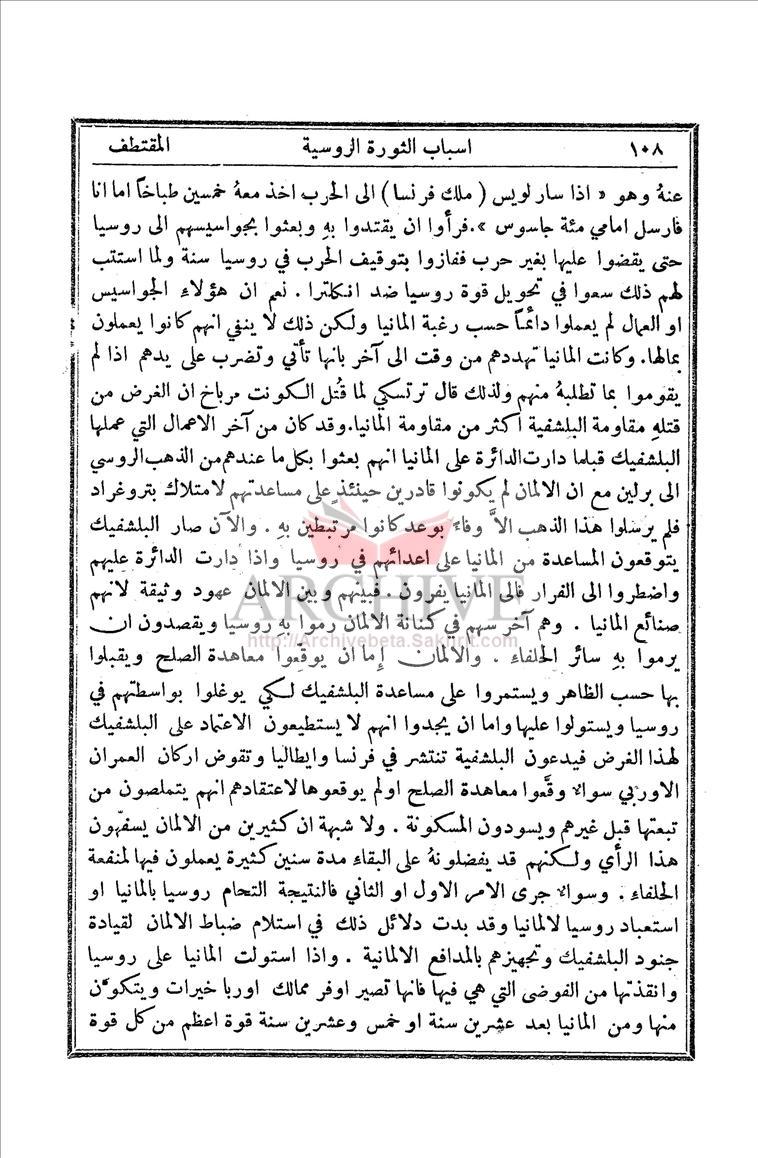 ١٠٨ اسباب الثورة الروسية المقتطف
عنهُ وهو « اذا سار لويس ( ملك فرنسا ) الى الحرب اخذ معهُ خمسين طباخاً اما انا
فارسل امامي مئة جاسوس ».فرأوا ان يقتدوا بهِ وبعثوا بجواسيسهم الى روسيا
حتى يقضوا عليها بغير حرب ففازوا بتوقيف الحرب في روسيا سنة ولما استتب
لهم ذلك سعوا في تحويل قوة روسيا ضد انكلترا . نعم ان هؤلاء الجواسيس
او العمال لم يعملوا دائماً حسب رغبة المانيا ولكن ذلك لا ينفي انهم كانوا يعملون
بمالها. وكانت المانيا تهددهم من وقت الى آخر بانها تأتي وتضرب على يدهم اذا لم
يقوموا بما تطلبهُ منهم ولذلك قال ترتسكي لما قُتل الكونت مرباخ ان الغرض من
قتلهِ مقاومة البلشفية اكثر من مقاومة المانيا.وقد كان من آخر الاعمال التي عملها
البلشفيك قبلما دارت الدائرة على المانيا انهم بعثوا بكل ما عندهم من الذهب الروسي
الى برلين مع ان الالمان لم يكونوا قادرين حينئذٍ على مساعدتهم لامتلاك بتروغراد
فلم يرسلوا هذا الذهب الاَّ وفاءً بوعد كانوا مرتبطين بهِ . والآن صار البلشفيك
يتوقعون المساعدة من المانيا على اعدائهم في روسيا واذا دارت الدائرة عليهم
واضطروا الى الفرار فالى المانيا يفرون . فبينهم وبين الالمان عهود وثيقة لانهم
صنائع المانيا . وهم آخر سهم في كنانة الالمان رموا بهِ روسيا ويقصدون ان
يرموا بهِ سائر الحلفاء . والالمان إما ان يوقعوا معاهدة الصلح ويقبلوا
بها حسب الظاهر ويستمروا على مساعدة البلشفيك لكي يوغلوا بواسطتهم في
روسيا ويستولوا عليها واما ان يجدوا انهم لا يستطيعون الاعتماد على البلشفيك
لهذا الغرض فيدعون البلشفية تنتشر في فرنسا وايطاليا وتقوض اركان العمران
الاوربي سواءٌ وقَّعوا معاهدة الصلح او لم يوقعوها لاعتقادهم انهم يتملصون من
تبعتها قبل غيرهم ويسودون المسكونة . ولا شبهة ان كثيرين من الالمان يسفّهون
هذا الرأي ولكنهم قد يفضلونهُ على البقاء مدة سنين كثيرة يعملون فيها لمنفعة
الحلفاء . وسواءٌ جرى الامر الاول او الثاني فالنتيجة التحام روسيا بالمانيا او
استعباد روسيا لالمانيا وقد بدت دلائل ذلك في استلام ضباط الالمان لقيادة
جنود البلشفيك وتجهيزهم بالمدافع الالمانية . واذا استولت المانيا على روسيا
وانقذتها من الفوضى التي هي فيها فانها تصير اوفر ممالك اوربا خيرات ويتكوَّن
منها ومن المانيا بعد عشرين سنة او خمس وعشرين سنة قوة اعظم من كل قوة
ARCHIVE
http://Archivebeta.Sakhrit.com